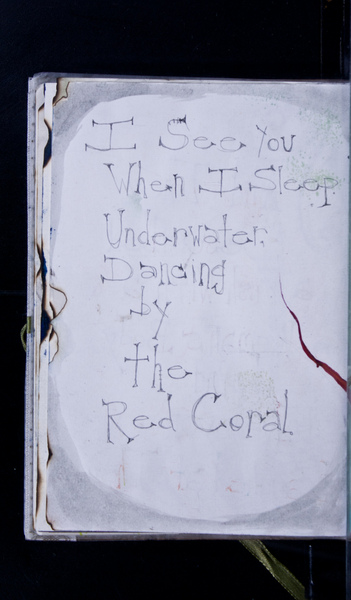 I See You
When I Sleep
Underwater
Dancing
by
the
Red Coral